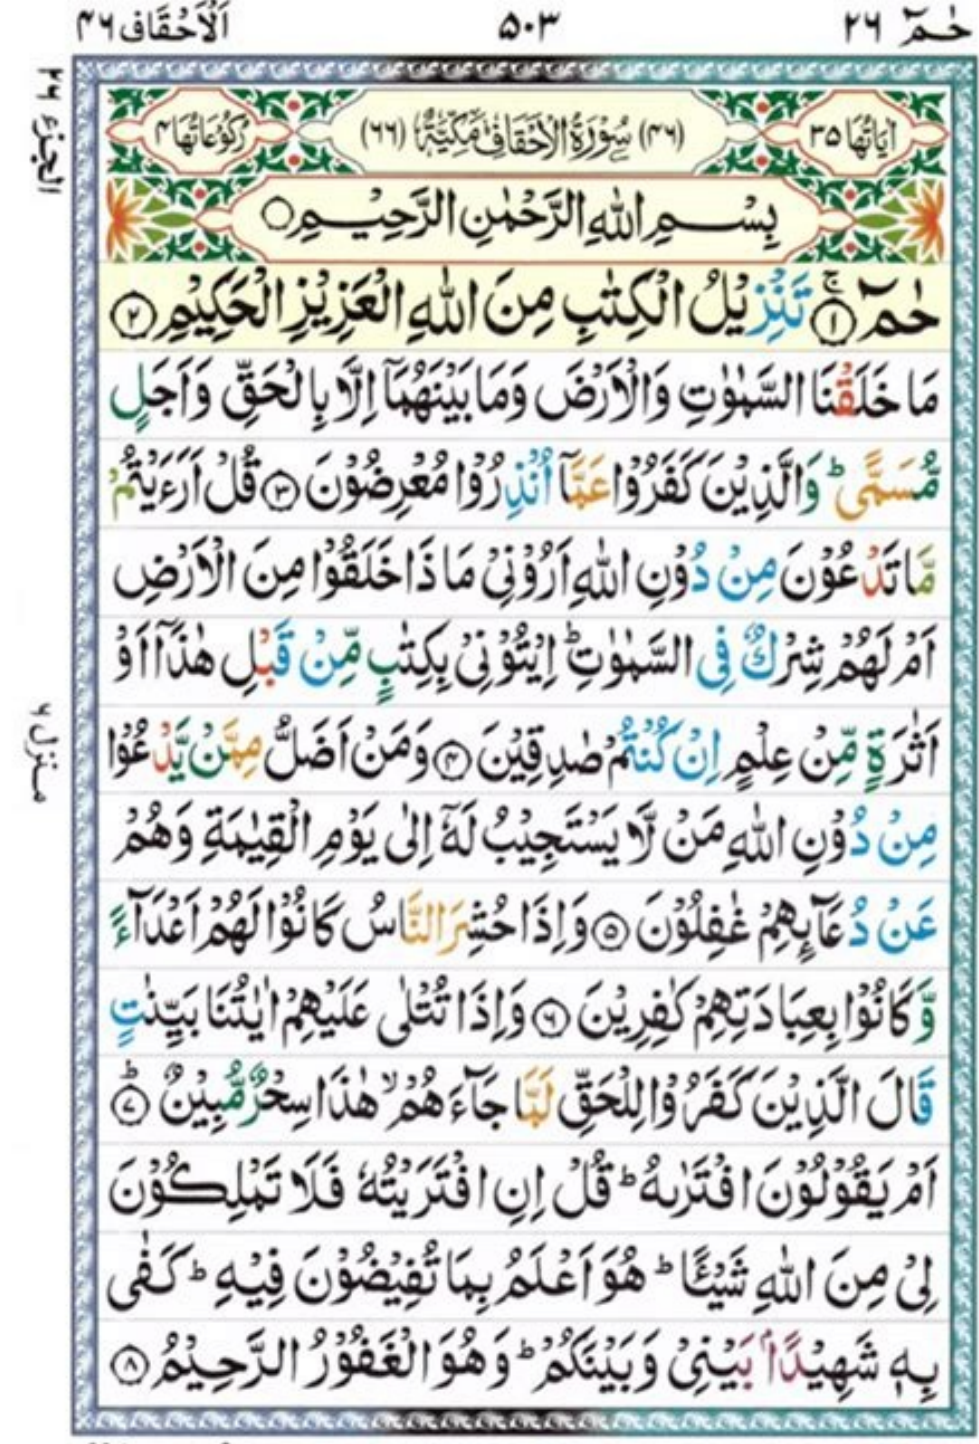 حٰمٓ ۲۶
۵۰۳
اَلْاَحْقَاف ۴۶
الجزء ۲۶
اٰيَاتُهَا ۳۵
(۴۶) سُوْرَةُ الْاَحْقَافِ مَكِّيَّةٌ (۶۶)
رُكُوْعَاتُهَا ۴
بِسْمِ اللّٰهِ الرَّحْمٰنِ الرَّحِيْمِ ○
حٰمٓ ۚ ﴿۱﴾ تَنْزِيْلُ الْكِتٰبِ مِنَ اللّٰهِ الْعَزِيْزِ الْحَكِيْمِ ﴿۲﴾
مَا خَلَقْنَا السَّمٰوٰتِ وَالْاَرْضَ وَمَا بَيْنَهُمَاۤ اِلَّا بِالْحَقِّ وَاَجَلٍ
مُّسَمًّى ؕ وَالَّذِيْنَ كَفَرُوْا عَمَّاۤ اُنْذِرُوْا مُعْرِضُوْنَ ﴿۳﴾ قُلْ اَرَءَيْتُمْ
مَّا تَدْعُوْنَ مِنْ دُوْنِ اللّٰهِ اَرُوْنِيْ مَاذَا خَلَقُوْا مِنَ الْاَرْضِ
اَمْ لَهُمْ شِرْكٌ فِى السَّمٰوٰتِ ؕ اِيْتُوْنِيْ بِكِتٰبٍ مِّنْ قَبْلِ هٰذَاۤ اَوْ
اَثٰرَةٍ مِّنْ عِلْمٍ اِنْ كُنْتُمْ صٰدِقِيْنَ ﴿۴﴾ وَمَنْ اَضَلُّ مِمَّنْ يَّدْعُوْا
منزل ۶
مِنْ دُوْنِ اللّٰهِ مَنْ لَّا يَسْتَجِيْبُ لَهٗۤ اِلٰى يَوْمِ الْقِيٰمَةِ وَهُمْ
عَنْ دُعَآئِهِمْ غٰفِلُوْنَ ﴿۵﴾ وَاِذَا حُشِرَ النَّاسُ كَانُوْا لَهُمْ اَعْدَآءً
وَّكَانُوْا بِعِبَادَتِهِمْ كٰفِرِيْنَ ﴿۶﴾ وَاِذَا تُتْلٰى عَلَيْهِمْ اٰيٰتُنَا بَيِّنٰتٍ
قَالَ الَّذِيْنَ كَفَرُوْا لِلْحَقِّ لَمَّا جَآءَهُمْ ۙ هٰذَا سِحْرٌ مُّبِيْنٌ ؕ ﴿۷﴾
اَمْ يَقُوْلُوْنَ افْتَرٰىهُ ؕ قُلْ اِنِ افْتَرَيْتُهٗ فَلَا تَمْلِكُوْنَ
لِيْ مِنَ اللّٰهِ شَيْـًٔا ؕ هُوَ اَعْلَمُ بِمَا تُفِيْضُوْنَ فِيْهِ ؕ كَفٰى
بِهٖ شَهِيْدًۢا بَيْنِيْ وَبَيْنَكُمْ ؕ وَهُوَ الْغَفُوْرُ الرَّحِيْمُ ﴿۸﴾